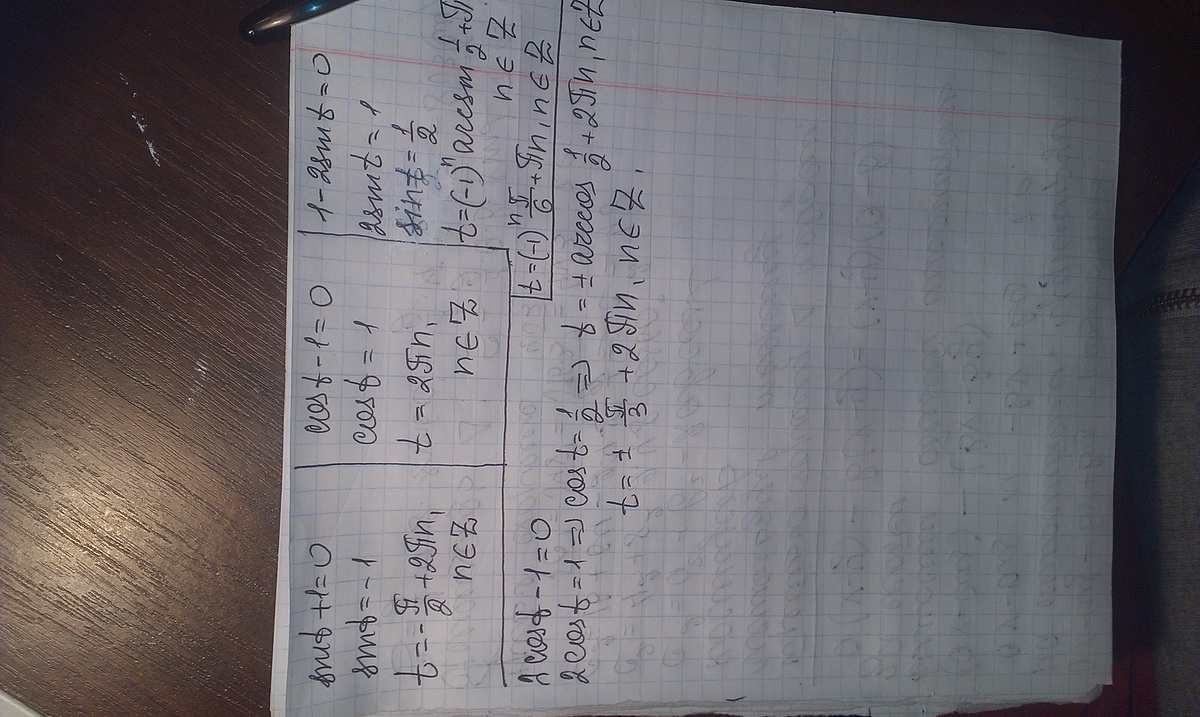 sint+1=0
sint=-1
t=-π/2+2πn,
n∈Z
cost-1=0
cost=1
t=2πn,
n∈Z
1-2sint=0
2sint=1
sint=1/2
t=(-1)ⁿarcsin 1/2+π
n∈Z
t=(-1)ⁿ π/6+πn, n∈Z
2cost-1=0
2cost=1=>cost=1/2=> t=±arccos 1/2+2πn, n∈Z
t=± π/3+2πn, n∈Z.